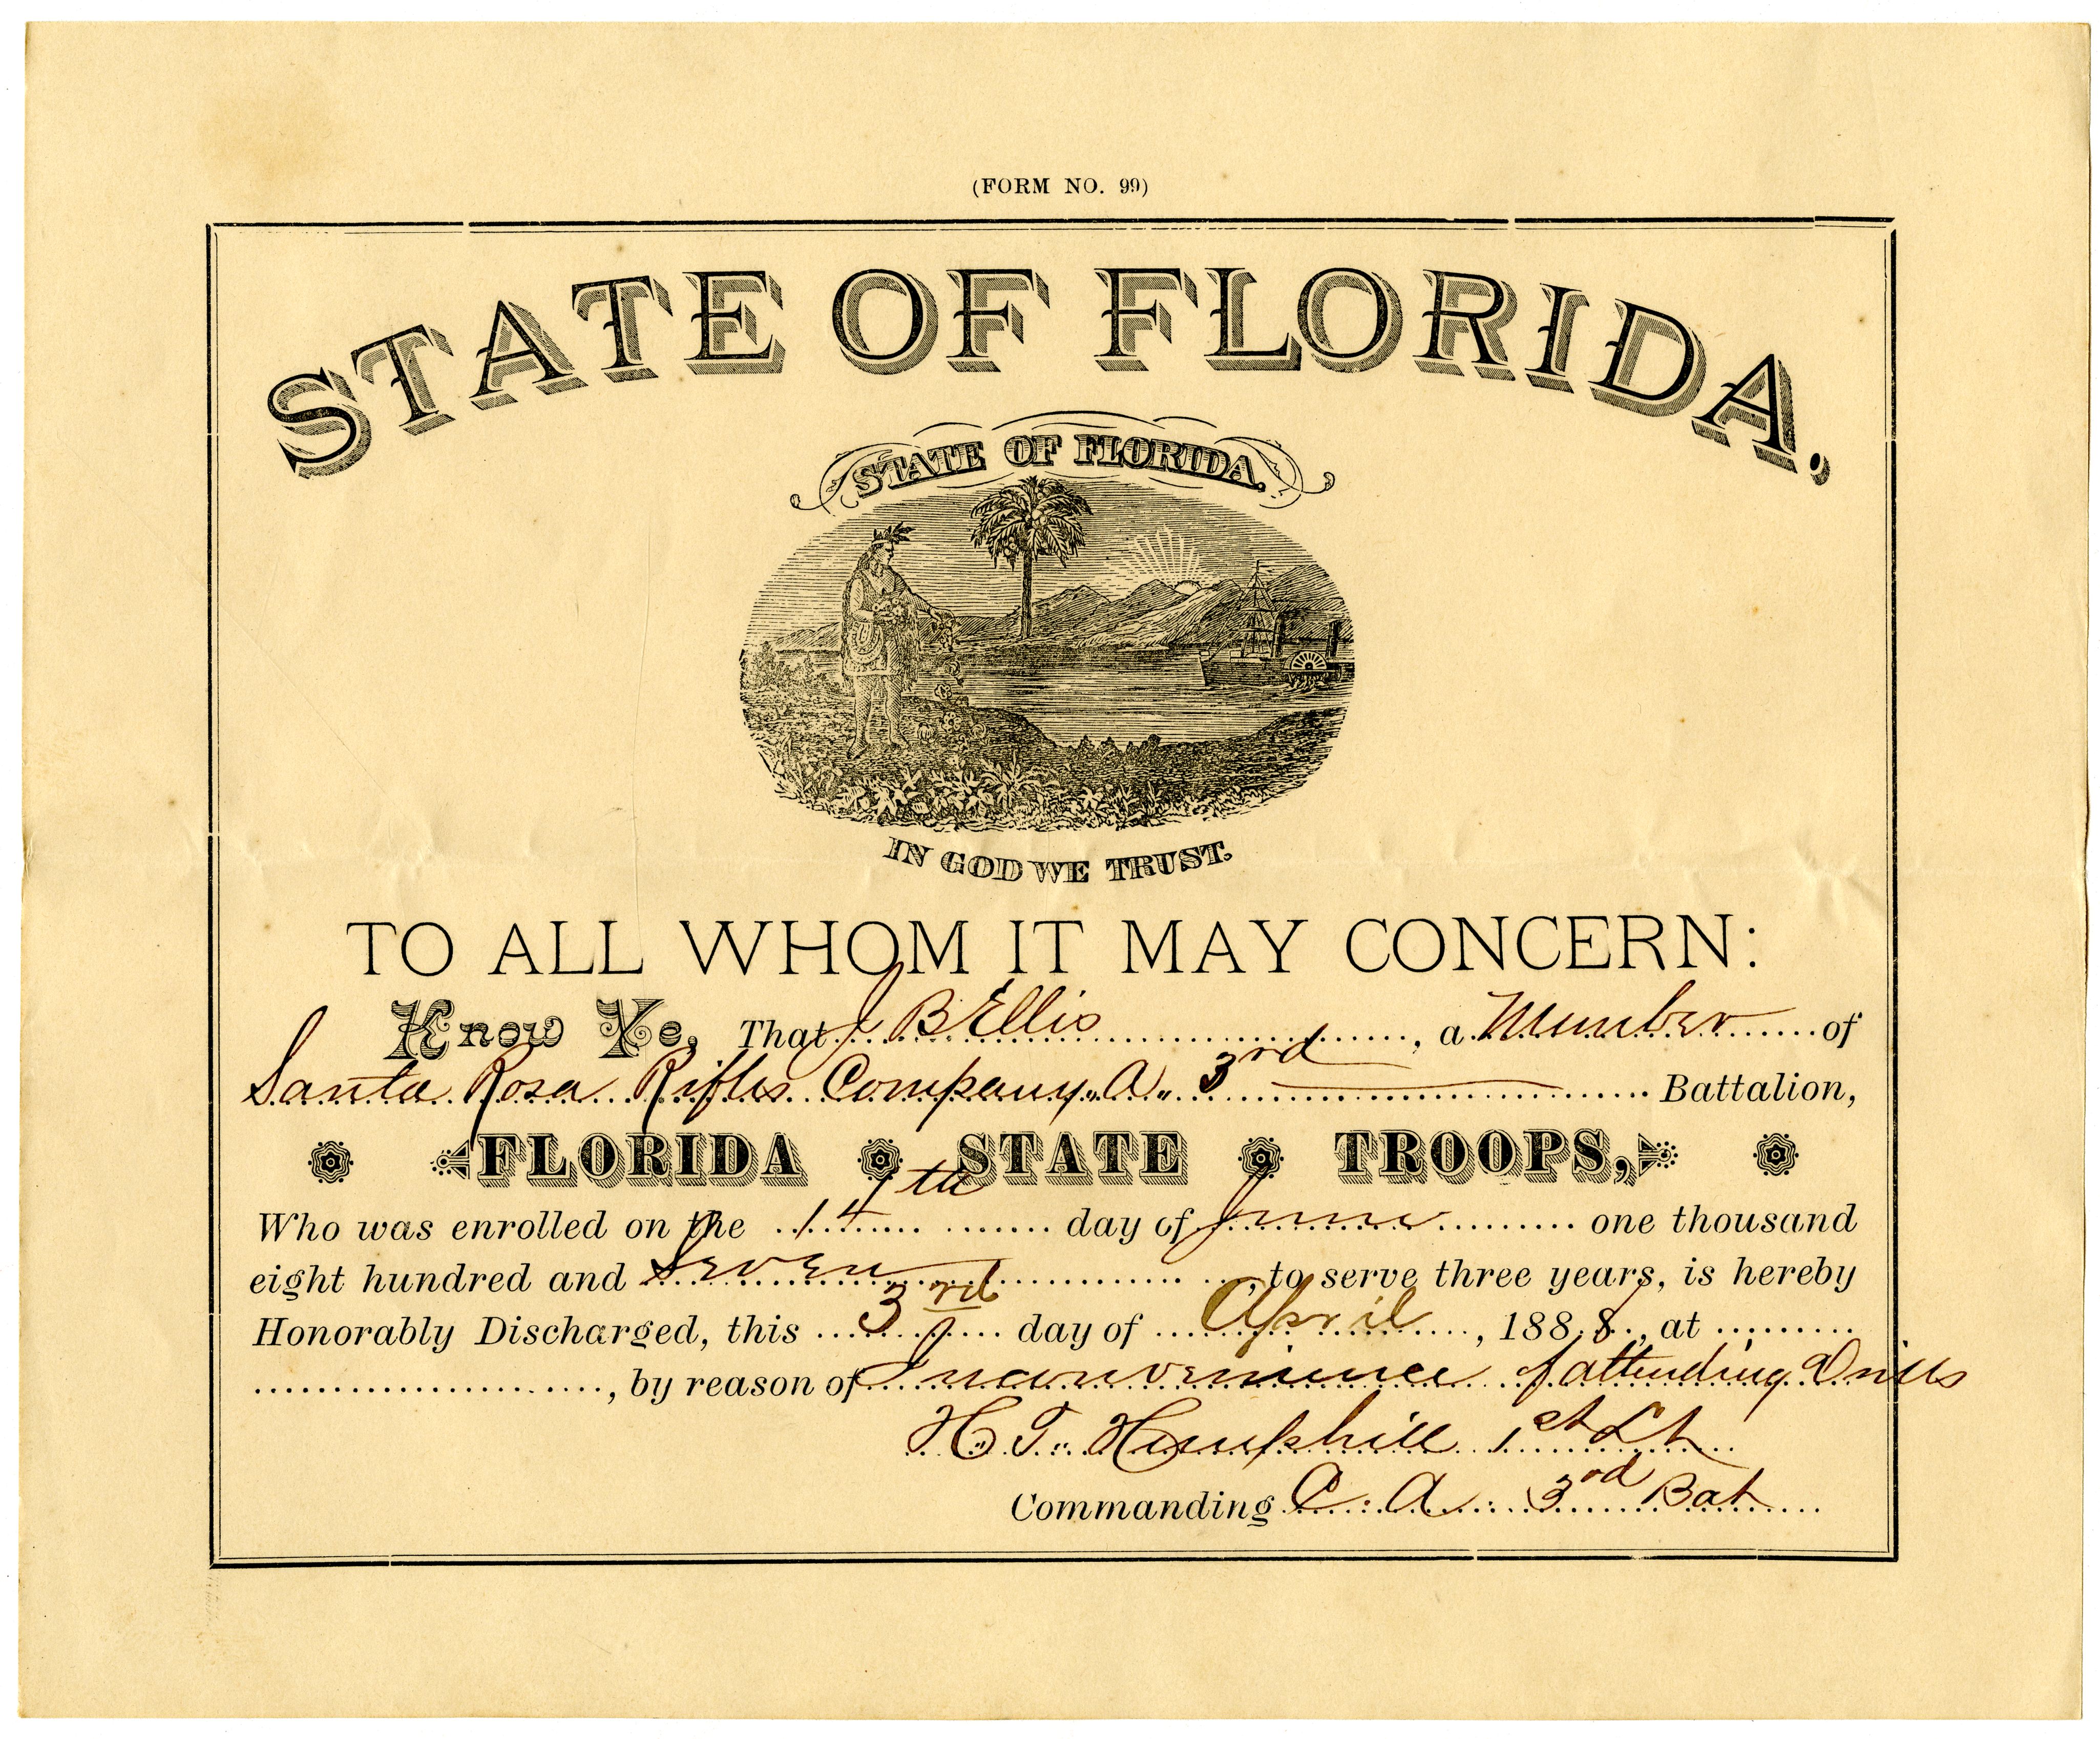 (FORM NO. 99)
STATE OF FLORIDA,
STATE OF FLORIDA.
IN GOD WE TRUST.
TO ALL WHOM IT MAY CONCERN:
Know Ye, That J B Ellis, a Member of
Santa Rosa Rifles Company "A" 3rd Battalion,
FLORIDA STATE TROOPS,
Who was enrolled on the 14th day of June one thousand
eight hundred and Seven, to serve three years, is hereby
Honorably Discharged, this 3rd day of April, 1888, at
, by reason of Inconvenience of attending Drills
H. T. Hemphill 1st Lt
Commanding C. A. 3rd Bat